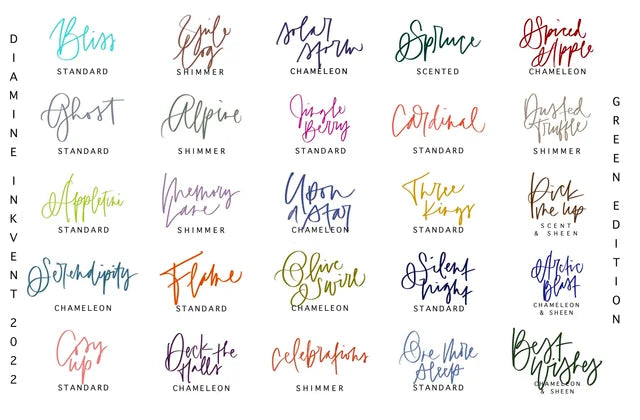 DIAMINE INKVENT 2022
Bliss
STANDARD
Yule
Log
SHIMMER
Solar
Storm
CHAMELEON
Spruce
SCENTED
Spiced
Apple
CHAMELEON
Ghost
STANDARD
Alpine
SHIMMER
Jingle
Berry
STANDARD
Cardinal
STANDARD
Dusted
Truffle
SHIMMER
Appletini
STANDARD
Memory
Lane
SHIMMER
Upon
a Star
CHAMELEON
Three
Kings
STANDARD
Pick
me up
SCENT
& SHEEN
Serendipity
CHAMELEON
Flame
STANDARD
Olive
Swirl
CHAMELEON
Silent
Night
STANDARD
Arctic
Blast
CHAMELEON
& SHEEN
Cosy
up
STANDARD
Deck the
Halls
CHAMELEON
Celebrations
SHIMMER
One More
Sleep
STANDARD
Best
Wishes
CHAMELEON
& SHEEN
GREEN EDITION